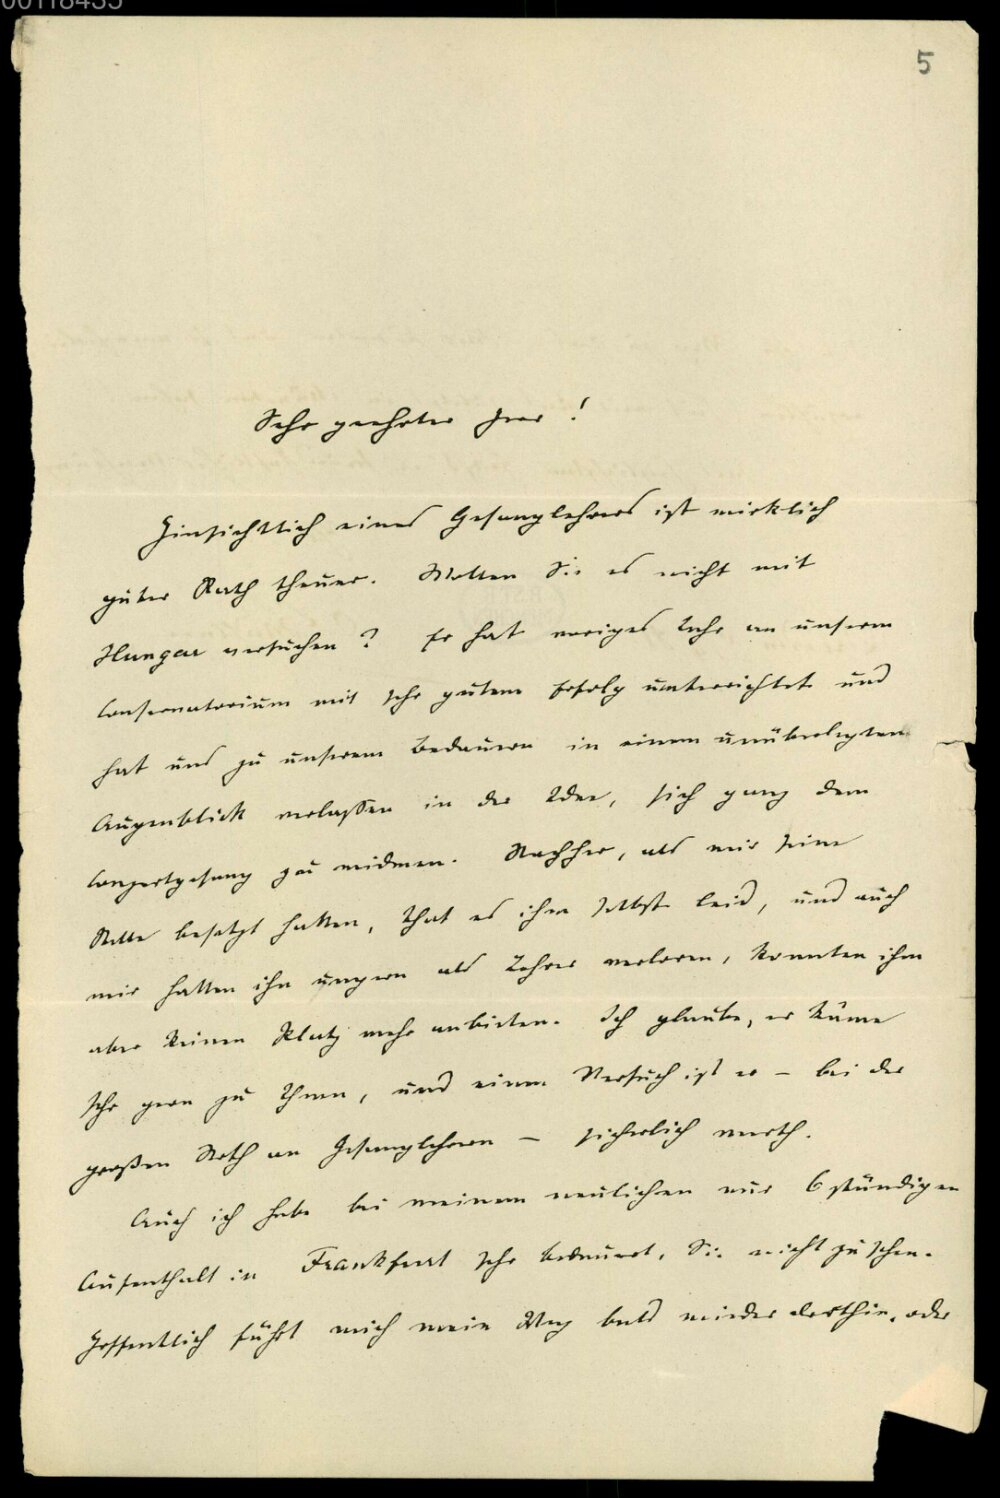 00118435
5
Sehr geehrter Herr!
Hinsichtlich eines Gesanglehrers ist wirklich
guter Rath theuer. Wollen Sie es nicht mit
Hungar versuchen? Er hat voriges Jahr an unserem
Conservatorium mit sehr gutem Erfolg unterrichtet und
hat uns zu unserem Bedauern in einem unüberlegten
Augenblick verlassen in der Idee, sich ganz dem
Conzertgesang zu widmen. Nachher, als wir seine
Stelle besetzt hatten, that es ihm selbst leid, und auch
wir hatten ihn ungern als Lehrer verloren, konnten ihm
aber keinen Platz mehr anbieten. Ich glaube, er käme
sehr gern zu Ihnen, und einen Versuch ist es – bei der
großen Noth an Gesanglehrern – sicherlich werth.
Auch ich habe bei meinem neulichen nur 6 stündigen
Aufenthalt in Frankfurt sehr bedauert, Sie nicht zu sehen.
Hoffentlich führt mich mein Weg bald wieder dorthin, oder